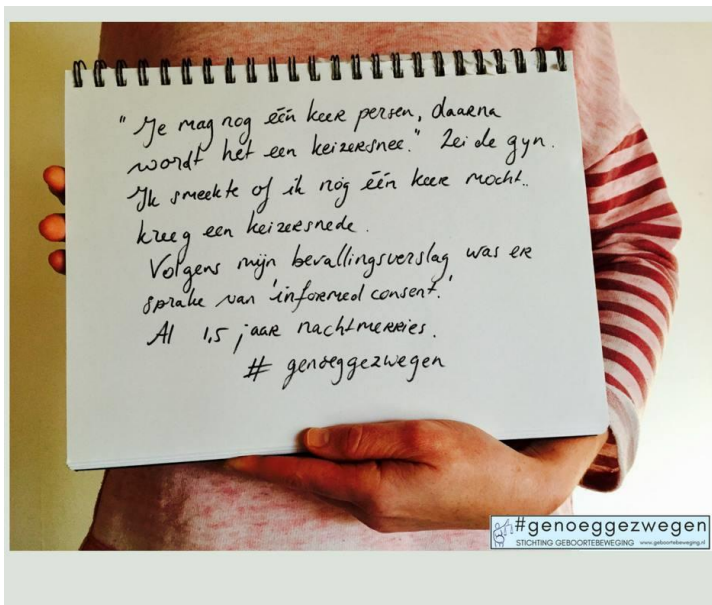 "Je mag nog één keer persen, daarna
wordt het een keizersnee." Zei de gyn.
Ik smeekte of ik nóg één keer mocht..
kreeg een keizersnede.
Volgens mijn bevallingsverslag was er
sprake van 'informed consent.'
Al 1,5 jaar nachtmerries.
# genoeggezwegen
#genoeggezwegen
STICHTING GEBOORTEBEWEGING www.geboortebeweging.nl